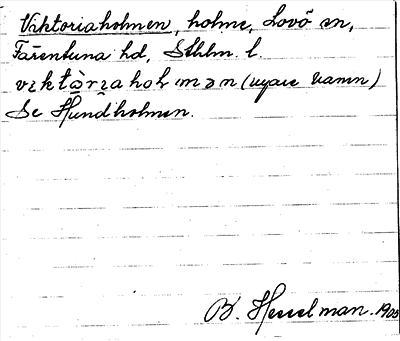 Viktoriaholmen, holme, Lovö sn,
Färentuna hd, Sthlm. l.
viktòriahoļmən (nyare namn)
Se Hundholmen.
B. Hesselman. 1905